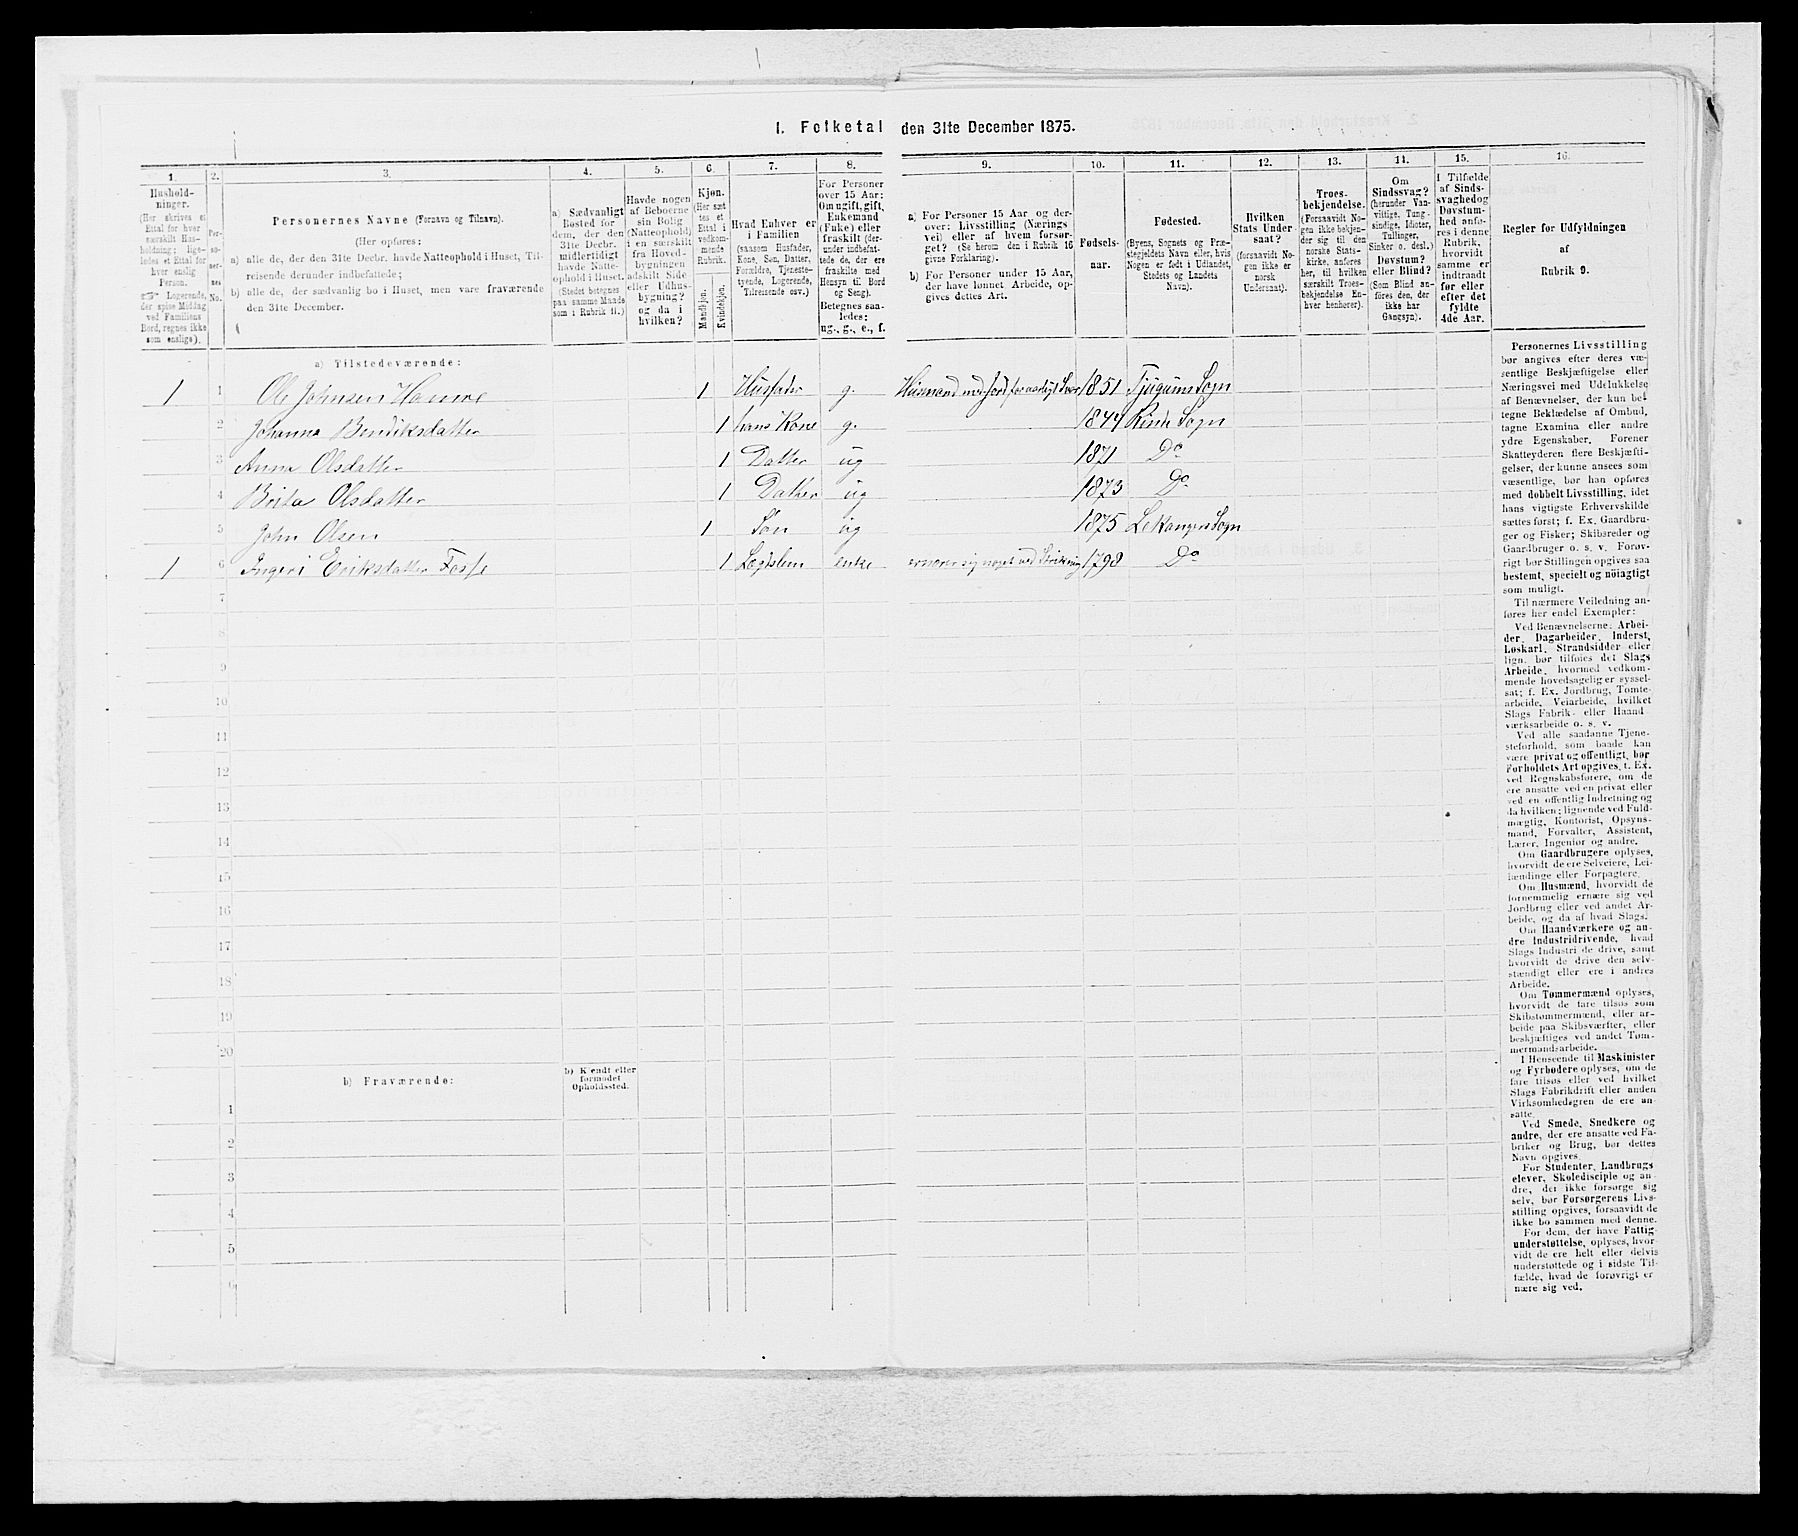 I. Folketal den 31te December 1875.
1. 2. 3. 4. 5. 6. 7. 8. 9. 10. 11. 12. 13. 14. 15. 16.
Hushold-
ninger.
(Her skrives et
Ettal for hver
særskilt Hus-
holdning; lige-
ledes et Ettal for
hver enslig
Person.
Logerende,
der spise Middag
ved Familiens
Bord, regnes ikke
som enslige).
Per-
so-
ner-
nes
No.
Personernes Navne (Fornavn og Tilnavn).
(Her opføres:
a) alle de, der den 31te Decbr. havde Natteophold i Huset, Til-
reisende derunder indbefattede;
b) alle de, der sædvanlig bo i Huset, men vare fraværende
den 31te December.
a) Sædvanligt
Bosted for
dem, der den
31te Decbr.
midlertidigt
havde Natte-
ophold i Huset.
(Stedet betegnes
paa samme Maade
som i Rubrik 11.)
Havde nogen
af Beboerne
sin Bolig
(Natteophold)
i en særskilt
fra Hoved-
bygningen
adskilt Side
eller Udhus-
bygning?
og da i
hvilken?
Kjøn.
(Her sæt
tes et
Ettal i
vedkom-
mende
Rubrik.
Mandkjøn.
Kvindekjøn.
Hvad Enhver er
i Familien
(saasom Husfader,
Kone, Søn, Datter,
Forældre, Tjeneste-
tyende, Logerende,
Tilreisende osv.)
For Personer
over 15 Aar:
Om ugift, gift,
Enkemand
(Enke) eller
fraskilt (der-
under indbefat-
tede de, der ere
fraskilte med
Hensyn til Bord
og Seng).
Betegnes saa-
ledes:
ug., g., e., f.
a) For Personer 15 Aar og der-
over: Livsstilling (Nærings
vei) eller af hvem forsør-
get? (Se herom den i Rubrik 16
givne Forklaring).
b) For Personer under 15 Aar,
der have lønnet Arbeide, op-
gives dettes Art.
Fødsels-
aar.
Fødested.
(Byens, Sognets og Præ-
stegjeldets Navn eller, hvis
Nogen er født i Udlandet,
Stedets og Landets
Navn).
Hvilken
Stats Under-
saat?
(forsaavidt No-
gen ikke er
norsk
Undersaat).
Troes-
bekjendelse.
(Forsaavidt No-
gen ikke bekjen-
der sig til den
norske Stats-
kirke, anføres
her, til hvilken
særskilt Troes-
bekjendelse En-
hver henhører).
Om
Sindssvag?
(herunder Van-
vittige, Tung-
sindige, Idioter,
Tullinger,
Sinker o. desl.)
Døvstum?
eller Blind?
(Som Blind an-
føres den, der
ikke har
Gangsyn).
I Tilfælde
af Sinds-
svaghed og
Døvstum-
hed anfø-
res i denne
Rubrik,
hvorvidt
samme er
indtraadt
før eller
efter det
fyldte
4de Aar.
Regler for Udfyldningen
af
Rubrik 9.
a) Tilstedeværende:
1 1 Ole Johnsen Hamre 1 Husfader g. Husmand med Jord 1851 Tjugum Sogn
2 Johanna Bendiksdatter 1 hans Kone g. 1844 Rinde Sogn
3 Anna Olsdatter 1 Datter ug 1871 Do
4 Brita Olsdatter 1 Datter ug 1873 Do
5 John Olsen 1 Søn ug 1875 Lekanger Sogn
1 6 Ingeri Eriksdatter Fosse 1 Logislem enke ernærer sig noget ved Strikning 1798 Do
7
8
9
10
11
12
13
14
15
16
17
18
19
20
b) Fraværende:
b) Kjendt eller
formodet
Opholdssted.
1
2
3
4
5
6
Personernes Livsstilling
bør angives efter deres væ-
sentlige Beskjæftigelse eller
Næringsvei med Udelukkelse
af Benævnelser, der kun be-
tegne Beklædelse af Ombud,
tagne Examina eller andre
ydre Egenskaber. Forener
Skatteyderen flere Beskjæfti-
gelser, der kunne ansees som
væsentlige, bør han opføres
med dobbelt Livsstilling, idet
hans vigtigste Erhvervskilde
sættes først; f. Ex. Gaardbru-
ger og Fisker; Skibsreder og
Gaardbruger o. s. v. Forøv-
rigt bør Stillingen opgives saa
bestemt, specielt og nøiagtigt
som muligt.
Til nærmere Veiledning an-
føres her endel Exempler:
Ved Benævnelserne: Arbei-
der, Dagarbeider, Inderst,
Løskarl, Strandsidder eller
lign. bør tilføies det Slags
Arbeide, hvormed vedkom-
mende hovedsagelig er syssel-
sat; f. Ex. Jordbrug, Tomte-
arbeide, Veiarbeide, hvilket
Slags Fabrik- eller Haand-
værksarbeide o. s. v.
Ved alle saadanne Tjene-
steforhold, som baade kan
være privat og offentligt, bør
Forholdets Art opgives, t. Ex.
ved Regnskabsførere, om de
ere ansatte ved en privat eller
ved en offentlig Indretning og
da hvilken; lignende ved Fuld-
mægtig, Kontorist, Opsyns-
mand, Forvalter, Assistent,
Lærer, Ingeniør og andre.
Om Gaardbrugere oplyses,
hvorvidt de ere Selveiere, Lei-
lændinge eller Forpagtere.
Om Husmænd, hvorvidt de
fornemmelig ernære sig ved
Jordbrug eller ved andet Ar-
beide, og da af hvad Slags.
Om Haandværkere og an-
dre Industridrivende, hvad
Slags Industri de drive, samt
hvorvidt de drive den selv-
stændigt eller ere i andres
Arbeide.
Om Tømmermænd oplyses,
hvorvidt de fare tilsøs som
Skibstømmermænd, eller ar-
beide paa Skibsværfter, eller
beskjæftiges ved andet Tøm-
mermandsarbeide.
I Henseende til Maskinister
og Fyrbødere oplyses, om de
fare tilsøs eller ved hvilket
Slags Fabrikdrift eller anden
Virksomhedsgren de ere an-
satte.
Ved Smede, Snedkere og
andre, der ere ansatte ved Fa-
briker og Brug, bør dettes
Navn opgives.
For Studenter, Landbrugs
elever, Skoledisciple og an-
dre, der ikke forsørge sig
selv, bør Forsørgerens Livs-
stilling opgives, forsaavidt de
ikke bo sammen med denne.
For dem, der have Fattig-
understøttelse, oplyses, hvor-
vidt de ere helt eller delvis
understøttede og i sidste Til-
fælde, hvad de forøvrigt er
nære sig ved.